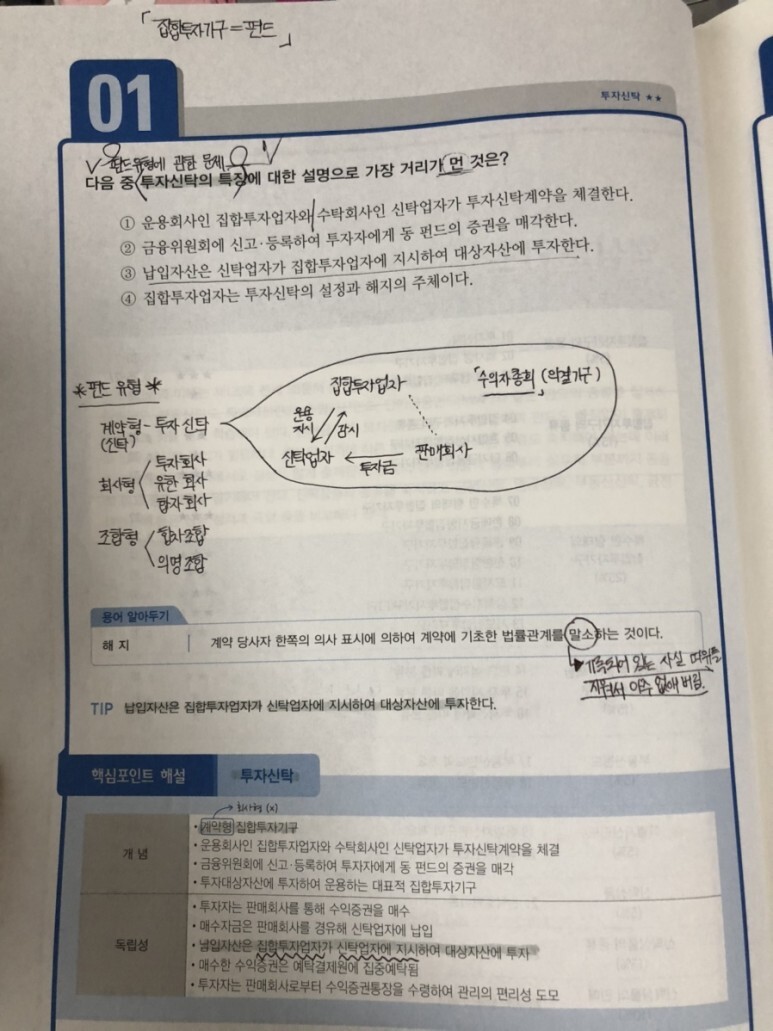 「집합투자기구=펀드」
01
투자신탁 ★★
펀드유형에 관한 문제
다음 중 투자신탁의 특징에 대한 설명으로 가장 거리가 먼 것은?
① 운용회사인 집합투자업자와 수탁회사인 신탁업자가 투자신탁계약을 체결한다.
② 금융위원회에 신고·등록하여 투자자에게 동 펀드의 증권을 매각한다.
③ 납입자산은 신탁업자가 집합투자업자에 지시하여 대상자산에 투자한다.
④ 집합투자업자는 투자신탁의 설정과 해지의 주체이다.
*펀드 유형*
계약형 - 투자신탁
(신탁)
회사형
투자회사
유한회사
합자회사
조합형
합자조합
익명조합
집합투자업자
「수익자총회」(의결기구)
운용
지시
감시
신탁업자
투자금
판매회사
용어 알아두기
해 지
계약 당사자 한쪽의 의사 표시에 의하여 계약에 기초한 법률관계를 말소하는 것이다.
기록되어 있는 사실 따위를
지워서 아주 없애버림.
TIP 납입자산은 집합투자업자가 신탁업자에 지시하여 대상자산에 투자한다.
핵심포인트 해설 투자신탁
회사형 (x)
개 념
• 계약형 집합투자기구
• 운용회사인 집합투자업자와 수탁회사인 신탁업자가 투자신탁계약을 체결
• 금융위원회에 신고·등록하여 투자자에게 동 펀드의 증권을 매각
• 투자대상자산에 투자하여 운용하는 대표적 집합투자기구
독립성
• 투자자는 판매회사를 통해 수익증권을 매수
• 매수자금은 판매회사를 경유해 신탁업자에 납입
• 납입자산은 집합투자업자가 신탁업자에 지시하여 대상자산에 투자
• 매수한 수익증권은 예탁결제원에 집중예탁됨
• 투자자는 판매회사로부터 수익증권통장을 수령하여 관리의 편리성 도모